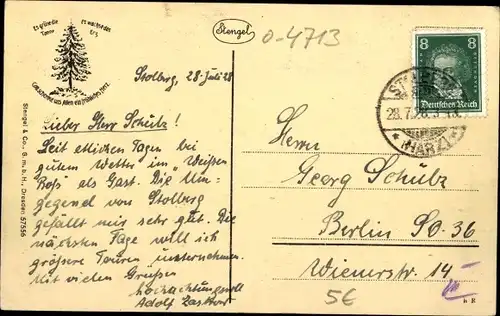 Es grüne die Tanne
Es wachse das Erz
Gott schenke uns Allen ein fröhliches Herz.
Stengel
0-4713
8 8
Deutsches Reich
STOLBERG
28.7.28.
* (HARZ)
Stolberg, 28. Juli 28
Lieber Herr Schulz!
Seit etlichen Tagen bei
gutem Wetter im "Weißen
Roß" als Gast. Die Um-
gegend von Stolberg
gefällt mir sehr gut. Die
nächsten Tage will ich
größere Touren unternehmen.
Mit vielen Grüßen
hochachtungsvoll
Adolf
Herrn
Georg Schulz
Berlin SO. 36
Wienerstr. 14
5€
Stengel & Co., G. m. b. H., Dresden 57556